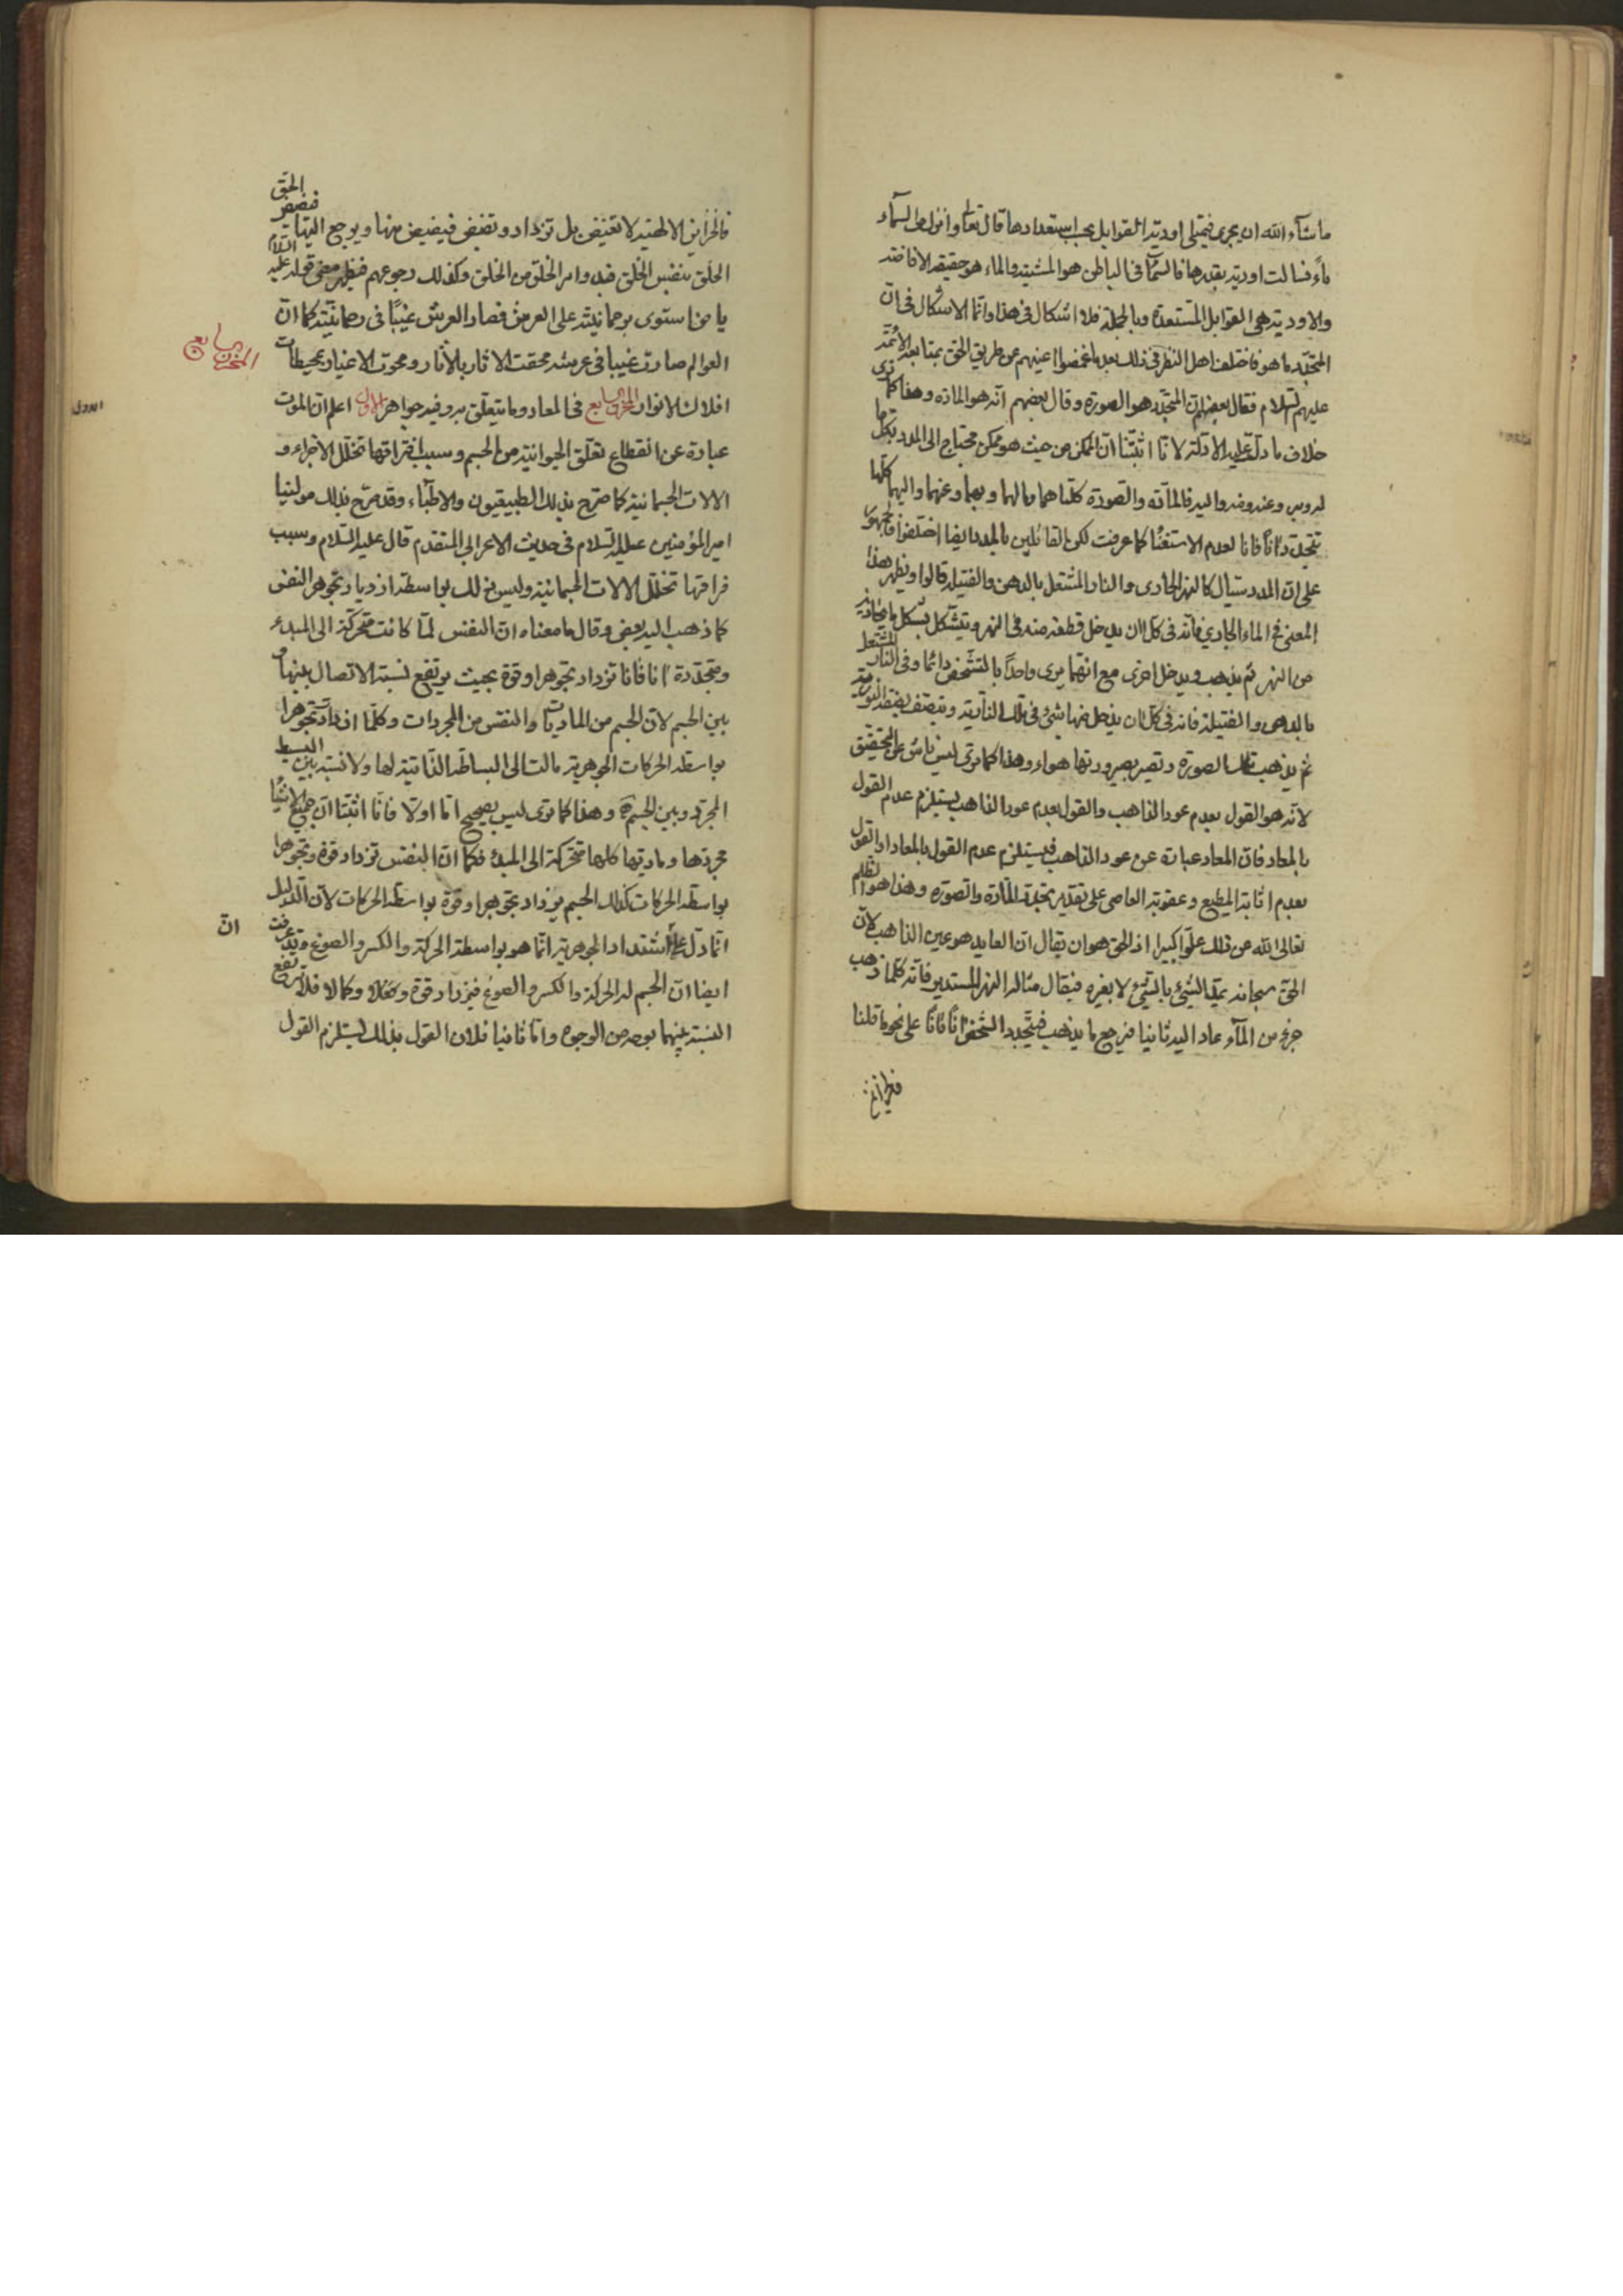 ما شآء الله ان يجرى فيمتلى اودية القوابل بحسب استعدادها قال تعالى وانزل من السمآء
مآءً فسالت اودية بقدرها فالسمآء فى الباطن هو المشية والماء هو حقيقة الافاضة
والاودية هى القوابل المستعدة وبالجملة فلا اشكال فى هذا وانما الاشكال فى ان
المتجدد ما هو فاختلف اهل النظر فى ذلك بعد ما غمضوا اعينهم عن طريق الحق بمتابعة الائمة
عليهم السلام فقال بعضهم ان المتجدد هو الصورة وقال بعضهم انه هو المادة وهذا كما ترى
خلاف ما دلت عليه الادلة لانا اثبتنا ان الممكن من حيث هو ممكن محتاج الى المدد بكل ما
له وبه وعنه ومنه واليه فالمادة والصورة كلتاهما ومالهما وبهما وعنهما واليهما كلها
تتجدد اناً فانا لعدم الاستغنا كما عرفت لكن القائلين بالمدد ايضا اختلفوا فالجمهور
على ان المدد سيال كالنهر الجارى والنار المشتعل بالدهن والفتيلة قالوا ويظهر هذا
المعنى فى الماء الجارى فانه فى كل ان يدخل قطعة منه فى النهر ويتشكل بشكل ما يحاذيه
من النهر ثم يذهب ويدخل اخرى مع انهما يرى واحداً بالتشخص دائما وفى النار المشتعل
بالدهن والفتيلة فانه فى كل ان يدخل منها شئ فى تلك النارية ويتصف بصفة النورية
ثم يذهب تلك الصورة وتصير بصيرورتها هواء وهذا كما ترى ليس ناش عن التحقيق
لانه هو القول بعدم عود الذاهب والقول بعدم عود الذاهب يستلزم عدم القول
بالمعاد فان المعاد عبارة عن عود الذاهب فيستلزم عدم القول بالمعاد او القول
بعدم اثابة المطيع وعقوبة العاصى على تقدير تجدد المادة والصورة وهذا هو الظلم
تعالى الله عن ذلك علواً كبيرا اذ الحق هو ان يقال ان العايد هو عين الذاهب لان
الحق سبحانه يمد الشئ بالشئ لا بغيره فيقال مثاله النهر المستدير فانه كلما ذهب
جزء من المآء عاد اليه ثانيا فيرجع ما يذهب فيتجدد الشخص اناً فاناً على نحو ما قلنا
فالخزاين الالهية لا تغيض بل تزداد وتفيض فيفيض منها ويرجع اليها فيضه الحق
الخلق بنفس الخلق فيه وامر الخلق من الخلق وكذلك رجوعهم فيظهر معنى قوله عليه السلام
يا من استوى برحمانيته على العرش فصار العرش غيباً فى رحمانيته كما ان
العوالم صارت غيبا فى عرشه محقت الاثار بالاثار ومحوت الاغيار بمحيطات
المخزن السابع
افلاك الانوار المخزن السابع فى المعاد وما يتعلق به وفيه جواهر الاول اعلم ان الموت
عبارة عن انقطاع تعلق الحيوانية من الجسم وسبب افتراقها تخلل الاجزاء و
الالات الجسمانية كما صرح بذلك الطبيعيون والاطبآء وقد صرح بذلك مولينا
امير المؤمنين عليه السلام فى حديث الاعرابى المتقدم قال عليه السلام وسبب
فراقها تخلل الالات الجسمانية وليس ذلك بواسطة ازدياد تجوهر النفس
كما ذهب اليه بعض وقال ما معناه ان النفس لما كانت متحركة الى المبدء
ومتجددة اناً فانا تزداد تجوهرا وقوة بحيث يرتفع نسبة الاتصال بينها و
بين الجسم لان الجسم من الماديات والنفس من المجردات وكلما ازدادت تجوهرا
بواسطة الحركات الجوهرية مالت الى البساطة الذاتية لها ولا نسبة بين البسيط
المجرد وبين الجسم وهذا كما ترى ليس بصحيح اما اولا فانا اثبتنا ان جميع الاشيآء
مجردها وماديتها كلها متحركة الى المبدء فكما ان النفس تزداد قوة وتجوهرا
بواسطة الحركات كذلك الجسم يزداد تجوهرا وقوة بواسطة الحركات لان الدليل
انما دل على اشتداد الجوهرية انما هو بواسطة الحركة والكسر والصوغ وقد عرفت
ان
ايضا ان الجسم له الحركة والكسر والصوغ فيزداد قوة وكمالا فلا ترتفع
النسبة بينهما بوجه من الوجوه واما ثانيا فلان القول بذلك يستلزم القول